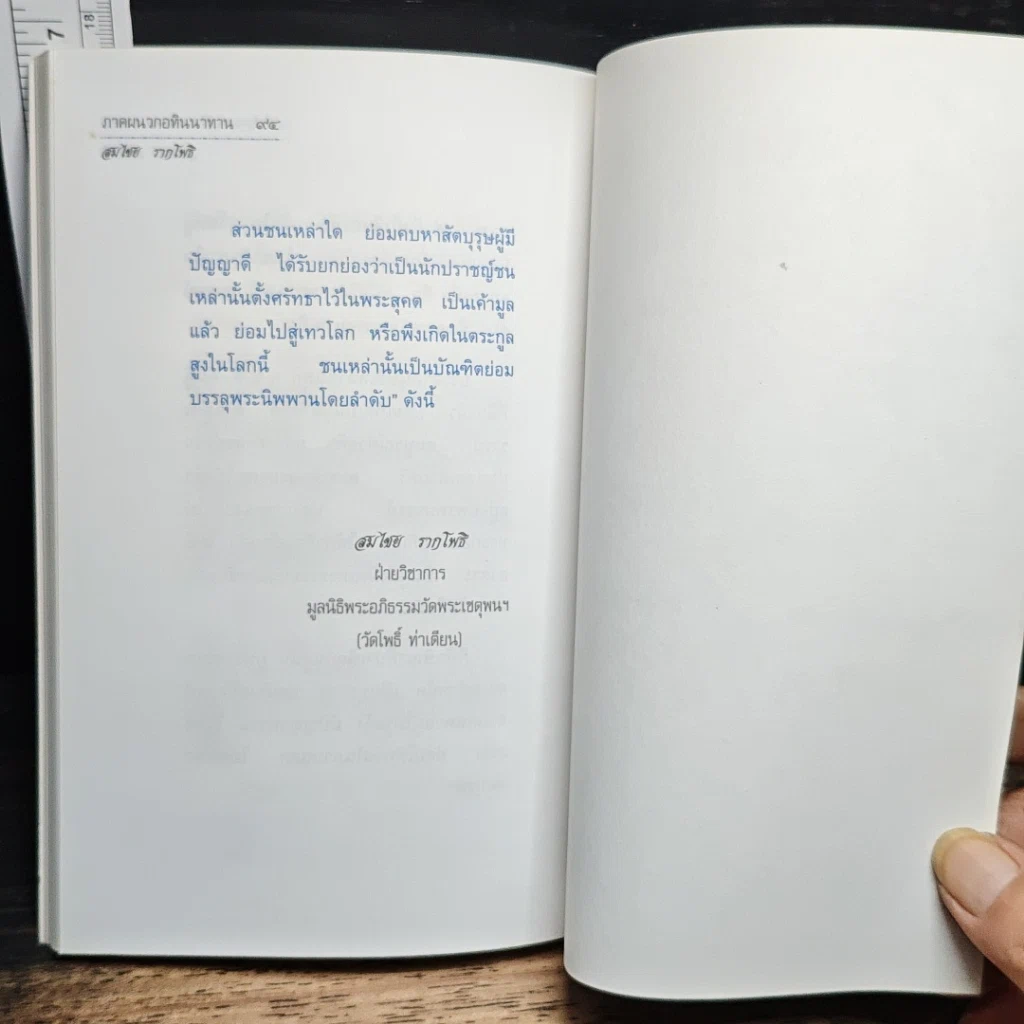 7
18
ภาคผนวกอทินนาทาน ๙๔
สมไชย รากโพธิ
ส่วนชนเหล่าใด ย่อมคบหาสัตบุรุษผู้มี
ปัญญาดี ได้รับยกย่องว่าเป็นนักปราชญ์ชน
เหล่านั้นตั้งศรัทธาไว้ในพระสุคต เป็นเค้ามูล
แล้ว ย่อมไปสู่เทวโลก หรือพึงเกิดในตระกูล
สูงในโลกนี้ ชนเหล่านั้นเป็นบัณฑิตย่อม
บรรลุพระนิพพานโดยลำดับ" ดังนี้
สมไชย รากโพธิ
ฝ่ายวิชาการ
มูลนิธิพระอภิธรรมวัดพระเชตุพนฯ
(วัดโพธิ์ ท่าเตียน)